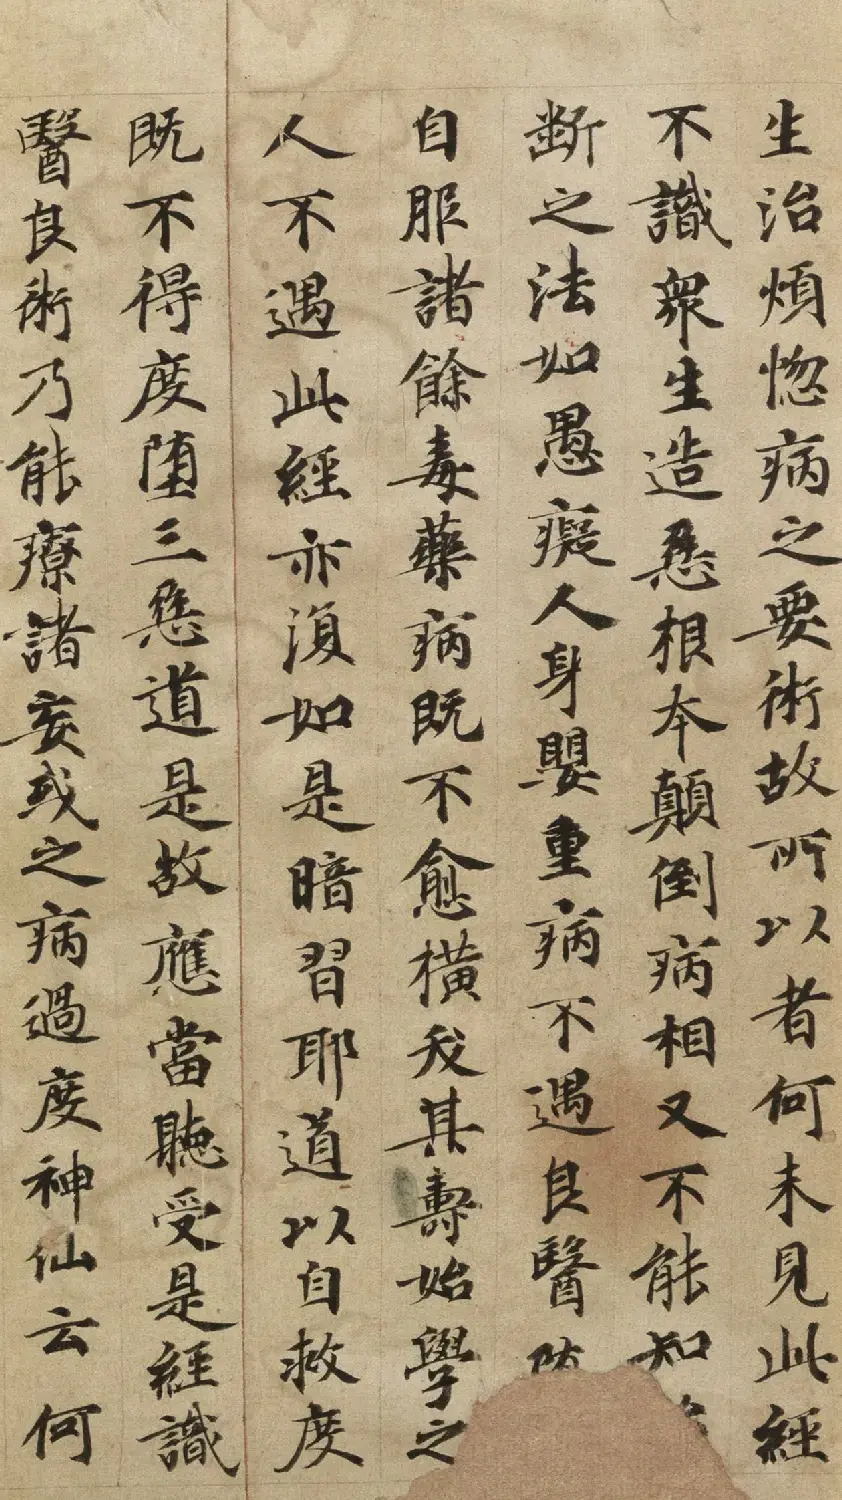 生治煩惚病之要術故所以者何未見此經
不識衆生造惡根本顛倒病相又不能知
斷之法如愚癡人身嬰重病不遇良醫
自服諸餘毒藥病既不愈横夭其壽始學之
人不遇此經亦復如是暗習耶道以自救度
既不得度堕三惡道是故應當聽受是經識
醫良術乃能療諸妄或之病過度神仙云何